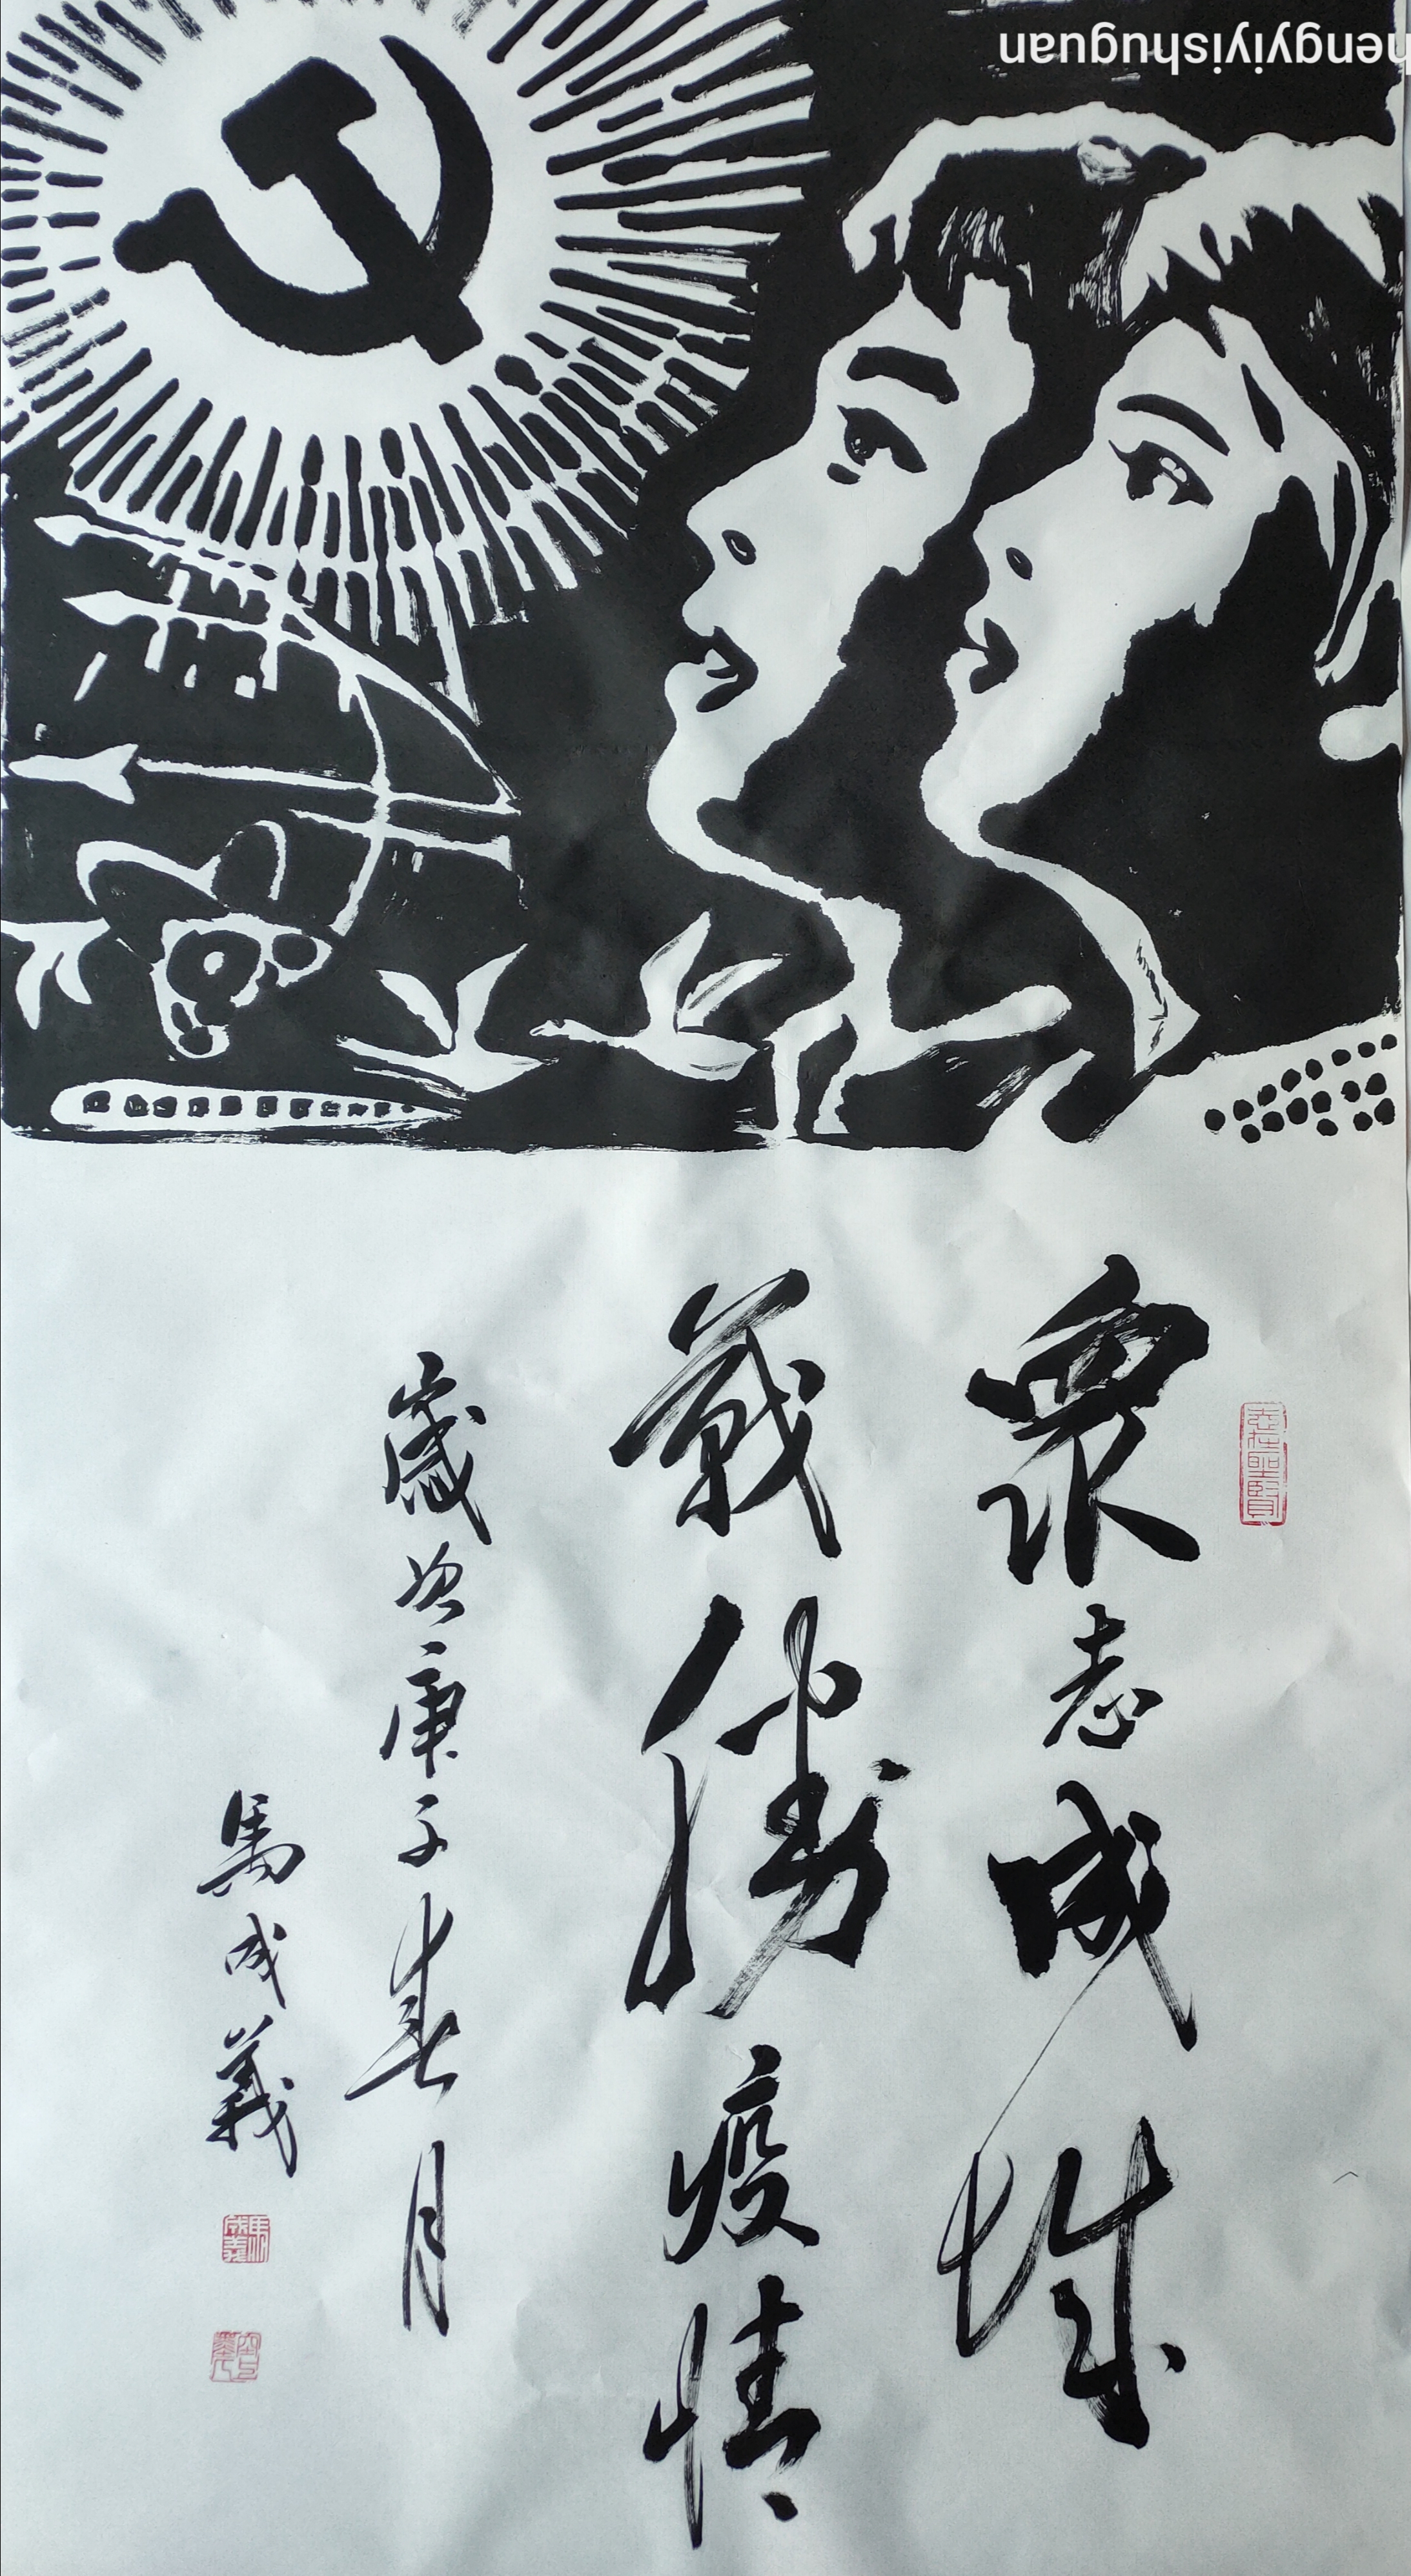 hengyiyishuguan
眾志成城
戰勝疫情
歲次庚子春月
馬成義
志在聖賢
馬成義印